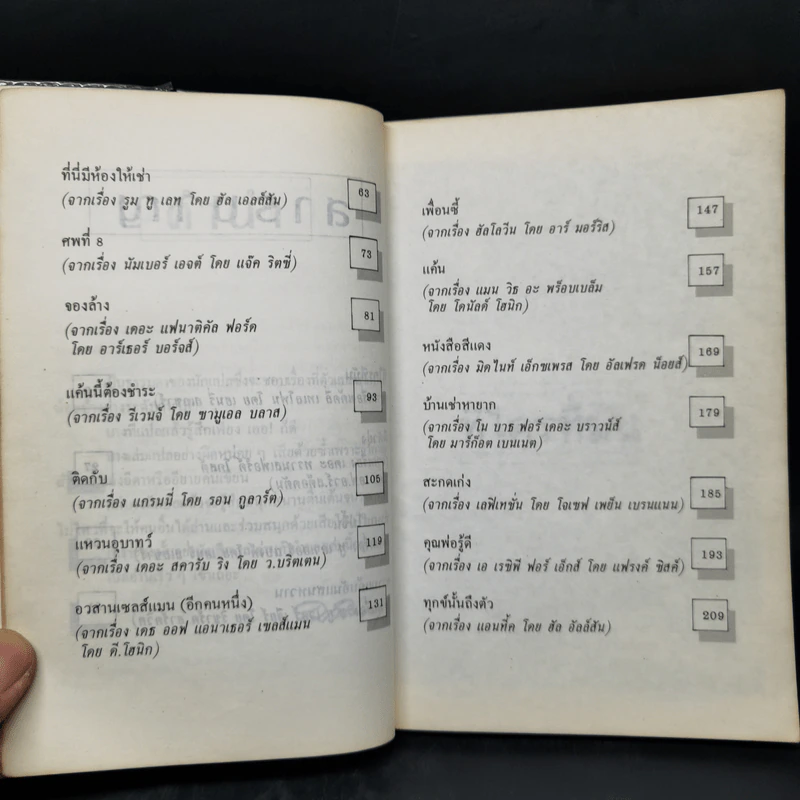 ที่นี่มีห้องให้เช่า 63
(จากเรื่อง รูม ทู เลท โดย ฮัล เอลล์สัน)
ศพที่ 8 73
(จากเรื่อง นัมเบอร์ เอจต์ โดย แจ๊ค ริตซี่)
จองล้าง 81
(จากเรื่อง เดอะ แฟนาติคัล ฟอร์ด
โดย อาร์เธอร์ บอร์จส์)
แค้นนี้ต้องชำระ 93
(จากเรื่อง รีเวนจ์ โดย ซามูเอล บลาส)
ติดกับ 105
(จากเรื่อง แกรนนี่ โดย รอน กูลาร์ต)
แหวนอุบาทว์ 119
(จากเรื่อง เดอะ สคารับ ริง โดย ว.บริตเตน)
อวสานเซลส์แมน (อีกคนหนึ่ง) 131
(จากเรื่อง เดธ ออฟ แอนาเธอร์ เซลส์แมน
โดย ดี.โฮนิก)
เพื่อนซี้ 147
(จากเรื่อง ฮัลโลวีน โดย อาร์ มอร์ริส)
แค้น 157
(จากเรื่อง แมน วิธ อะ พร็อบเบล็ม
โดย โดนัลด์ โฮนิก)
หนังสือสีแดง 169
(จากเรื่อง มิดไนท์ เอ็กซเพรส โดย อัลเฟรด น็อยส์)
บ้านเช่าหายาก 179
(จากเรื่อง โน บาธ ฟอร์ เดอะ บราวน์ส์
โดย มาร์ก็อต เบนเนต)
สะกดเก่ง 185
(จากเรื่อง เลฟิเทชั่น โดย โจเซฟ เพย็น เบรนแนน)
คุณพ่อรู้ดี 193
(จากเรื่อง เอ เรซิพี ฟอร์ เอ็กส์ โดย แฟรงค์ ซิสค์)
ทุกข์นั้นถึงตัว 209
(จากเรื่อง แอนที้ค โดย ฮัล อัลล์สัน)